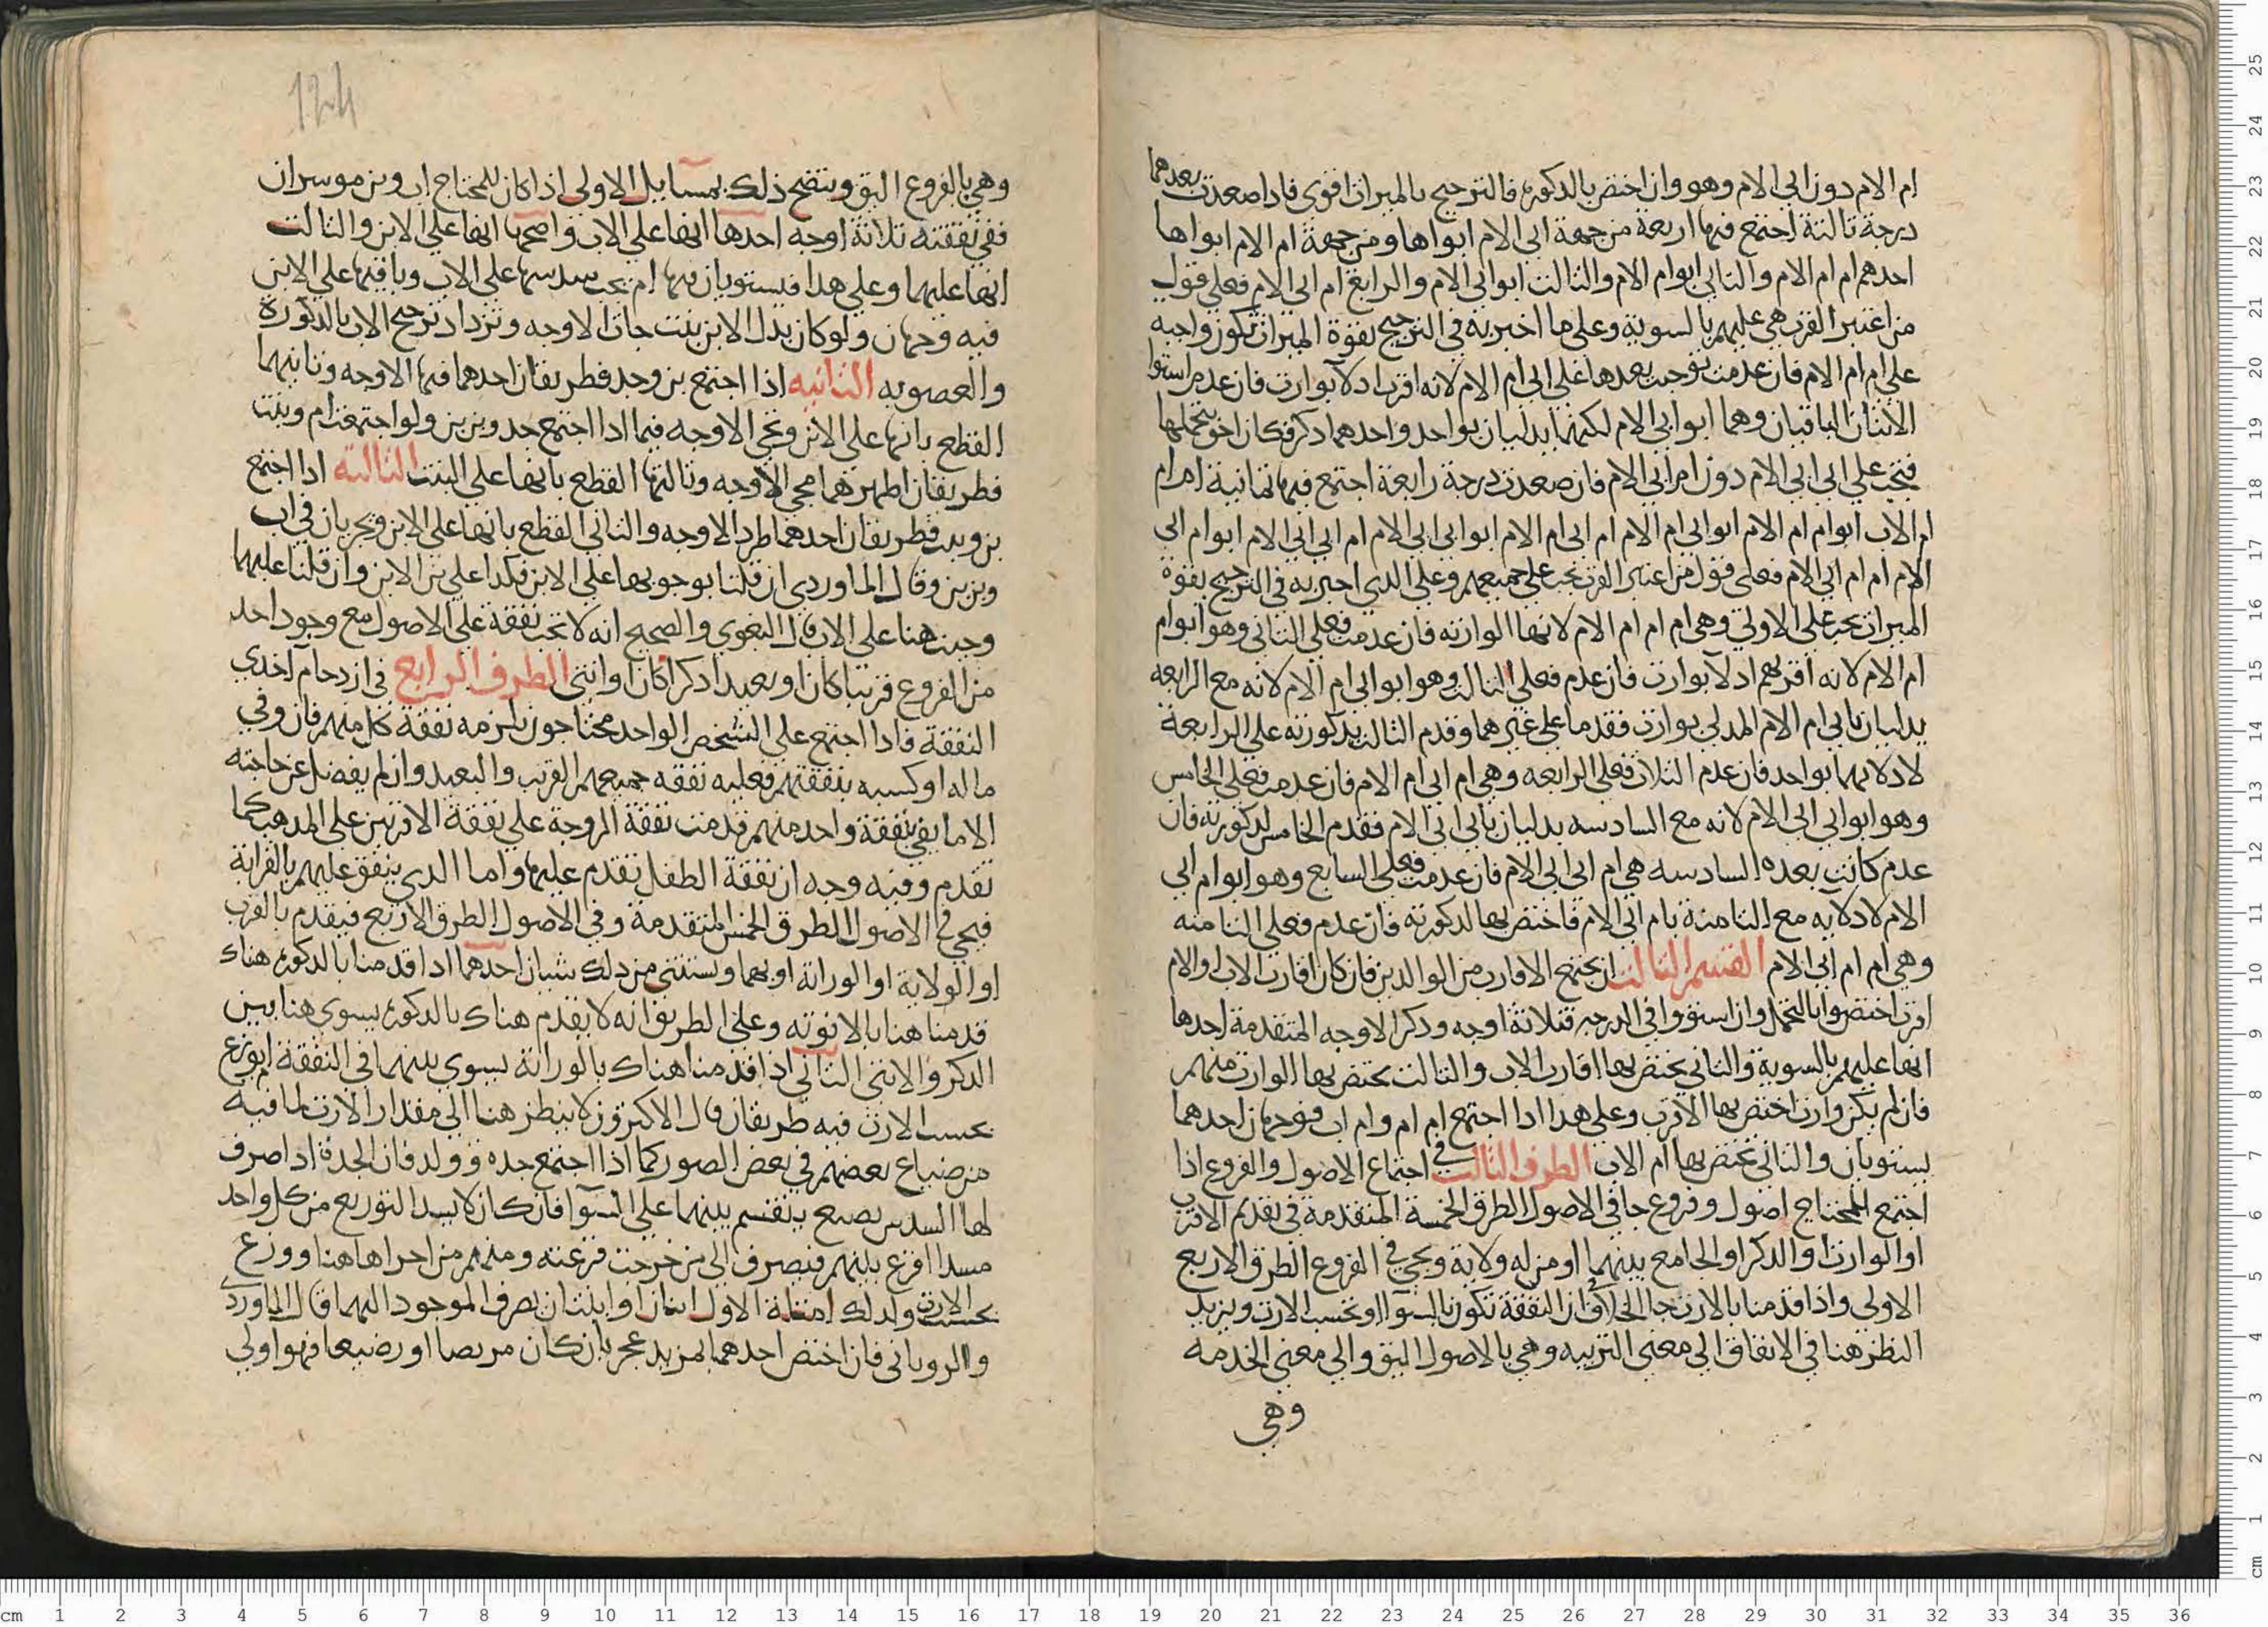 ام الام دون ابي الام وهو وان اختص بالذكورة فالترجيح بالميراث اقوى فاذا صعدت بعدهما
درجة ثالثة اجتمع فيها اربعة من جهة ابي الام ابواها ومن جهة ام الام ابواها
احدهم ام ام الام والثاني ابو ام الام والثالث ابو ابي الام والرابع ام ابي الام فعلى قول
من اعتبر القرب هي عليهم بالسوية وعلى ما اخبر به في الترجيح بقوة الميراث تكون واجبة
على ام ام الام فان عدمت توجب بعدها على ابي ام الام لانه اقرب ادلآ بوارث فان عدم استوا
الاثنان الباقيان وهما ابوا ابي الام لكنهما يدليان بواحد واحدهما ذكر فكان احق بتحملها
فتجب على ابي ابي الام دون ام ابي الام فان صعدت درجة رابعة اجتمع فيها ثمانية ام ام
ام الاب ابو ام ام الام ابو ابي ام الام ام ابي ام الام ابو ابي ابي الام ام ابي ابي الام ابو ام ابي
الام ام ام ابي الام فعلى قول من اعتبر القرب تجب على جميعهم وعلى الذي اخبر به في الترجيح بقوة
الميراث تجب على الاولى وهي ام ام ام الام لانها الوارثه فان عدمت فعلى الثاني وهو ابو ام
ام الام لانه اقربهم ادلآ بوارث فان عدم فعلى الثالث وهو ابو ابي ام الام لانه مع الرابعه
يدليان بابي ام الام المدلي بوارث فقدما على غيرهما وقدم الثالث بذكورته على الرابعة
لادلايهما بواحد فان عدم الثلاث فعلى الرابعه وهي ام ابي ام الام فان عدمت فعلى الخامس
وهو ابو ابي ابي الام لانه مع السادسه يدليان بابي ابي الام فقدم الخامس لذكورته فان
عدم كانت بعده السادسه هي ام ابي ابي الام فان عدمت فعلى السابع وهو ابو ام ابي
الام لادلايه مع الثامنة بام ابي الام فاختص بها لذكورته فان عدم فعلى الثامنه
وهي ام ام ابي الام القسم الثالث ان يجتمع الاقارب من الوالدين فان كان اقارب الاب او الام
اقرب اختصوا بالتحمل وان استووا في الدرجه فثلاثة اوجه وذكر الاوجه المتقدمة احدها
انها عليهم بالسوية والثاني يختص بها اقارب الاب والثالث يختص بها الوارث منهم
فان لم يكن وارث اختص بها الاقرب وعلى هذا اذا اجتمع ام ام وام اب فوجهان احدهما
يستويان والثاني تختص بها ام الاب الطرف الثالث في اجتماع الاصول والفروع اذا
اجتمع للمحتاج اصول وفروع جا في الاصول الطرق الخمسة المتقدمة في تقديم الاقرب
او الوارث او الذكر او الجامع بينهما او من له ولاية ويجي في الفروع الطرق الاربع
الاولى واذا قدمنا بالارث جا الخلاف ان النفقة تكون بالسوآ او بحسب الارث ويزيد
النظر هنا في الانفاق الى معنى التربيه وهي بالاصول اليق والى معنى الخدمه
وهي
124
وهي بالفروع اليق ويتضح ذلك بمسايل الاولى اذا كان للمحتاج اب وبن موسران
ففي نفقته ثلاثة اوجه احدها انها على الاب واصحها انها على الابن والثالث
انها عليهما وعلى هذا فيستويان فيها ام يجب سدسها على الاب وباقيها على الابن
فيه وجهان ولو كان بدل الابن بنت جات الاوجه وتزداد ترجيح الاب بالذكورة
والعصوبه الثانيه اذا اجتمع بن وجد فطريقان احدهما فيها الاوجه وثانيهما
القطع بانها على الابن وتجي الاوجه فيما اذا اجتمع جد وبن بن ولو اجتمعت ام وبنت
فطريقان اظهرهما مجي الاوجه وثالثها القطع بانها على البنت الثالثه اذا اجتمع
بن وبنت فطريقان احدهما طرد الاوجه والثاني القطع بانها على الابن وتجريان في اب
وبن بن وقال الماوردي ان قلنا بوجوبها على الابن فكذا على بن الابن وان قلنا عليهما
وجبت هنا على الاب قال البغوي والصحيح انه لا تجب نفقة على الاصول مع وجود احد
من الفروع قريبا كان او بعيدا ذكرا كان او انثى الطرف الرابع في ازدحام آخذي
النفقة فاذا اجتمع على الشخص الواحد محتاجون يلزمه نفقة كل منهم فان وفي
ماله او كسبه بنفقتهم فعليه نفقه جميعهم القريب والبعيد وان لم يفضل عن حاجته
الا ما يفي بنفقة واحد منهم قدمت نفقة الزوجة على نفقة الاقربين على المذهب كما
تقدم وفيه وجه ان نفقة الطفل تقدم عليها واما الذي ينفق عليهم بالقرابة
فيجي في الاصول الطرق الخمس المتقدمة وفي الاصول الطرق الاربع فيقدم بالقرب
او الولاية او الوراثة او بهما ويستثنى من ذلك شيان احدهما اذا قدمنا بالذكورة هناك
قدمنا هنا بالانوثه وعلى الطريق انه لا يقدم هناك بالذكورة يسوى هنا بين
الذكر والانثى الثاني اذا قدمنا هناك بالوراثة يسوى بينهما في النفقة ام يوزع
بحسب الارث فيه طريقان قال الاكثرون لا ينظر هنا الى مقدار الارث لما فيه
من ضياع بعضهم في بعض الصور كما اذا اجتمع جده وولد فان الجدة اذا صرف
لها السدس يضيع بل يقسم بينهما على السوآ فان كان لا يسد التوزيع من كل واحد
مسدا اقرع بينهم فيصرف الى من خرجت قرعته ومنهم من اجراها هنا ووزع
بحسب الارث ولذلك امثلة الاول ابنان او ابنتان يصرف الموجود اليهما قال الماوردي
والروياني فان اختص احدهما لمزيد عجز بان كان مريضا او رضيعا فهو اولى